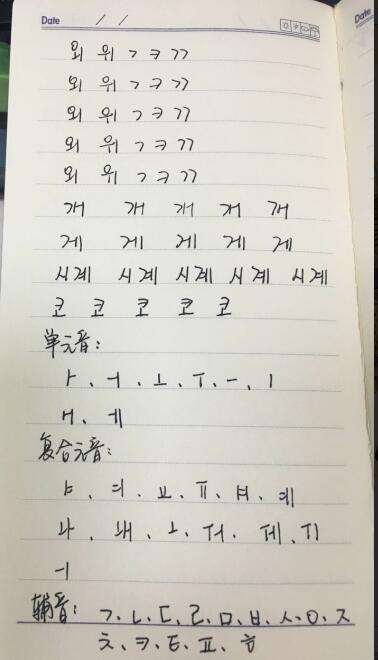 Date / /
외 위 ㄱ ㅋ ㄲ
외 위 ㄱ ㅋ ㄲ
외 위 ㄱ ㅋ ㄲ
외 위 ㄱ ㅋ ㄲ
외 위 ㄱ ㅋ ㄲ
개 개 개 개 개
게 게 게 게 게
시계 시계 시계 시계 시계
코 코 코 코 코
单元音:
ㅏ、ㅓ、ㅗ、ㅜ、ㅡ、ㅣ
ㅐ、ㅔ
复合元音:
ㅑ、ㅕ、ㅛ、ㅠ、ㅒ、ㅖ
ㅘ、ㅙ、ㅝ、ㅞ、ㅟ
ㅢ
辅音: ㄱ、ㄴ、ㄷ、ㄹ、ㅁ、ㅂ、ㅅ、ㅇ、ㅈ
ㅊ、ㅋ、ㅌ、ㅍ、ㅎ
Date